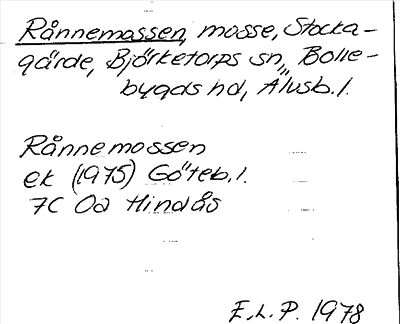 Rånnemassen, mosse, Stocka-
gärde, Björketorps sn, Bolle-
bygds hd, Älvsb. l.
Rånnemossen
ek (1975) Göteb. l.
7C 0a Hindås
E. L. P. 1978